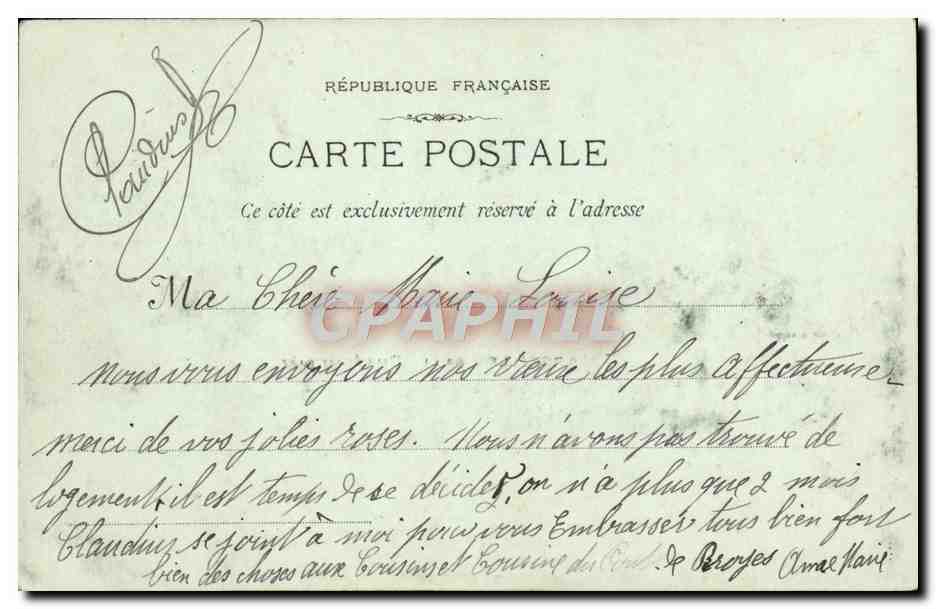 Claudius
RÉPUBLIQUE FRANÇAISE
CARTE POSTALE
Ce côté est exclusivement réservé à l'adresse
Ma Chère Marie Louise
CPAPHIL
nous vous envoyons nos vieux les plus affectueuse
merci de vos jolies roses. Nous n'avons pas trouvé de
logement, il est temps de se décider, on n'a plus que 2 mois
Claudius se joint à moi pour vous Embrasser tous bien fort
bien des choses aux Cousins et Cousine du de Broyes